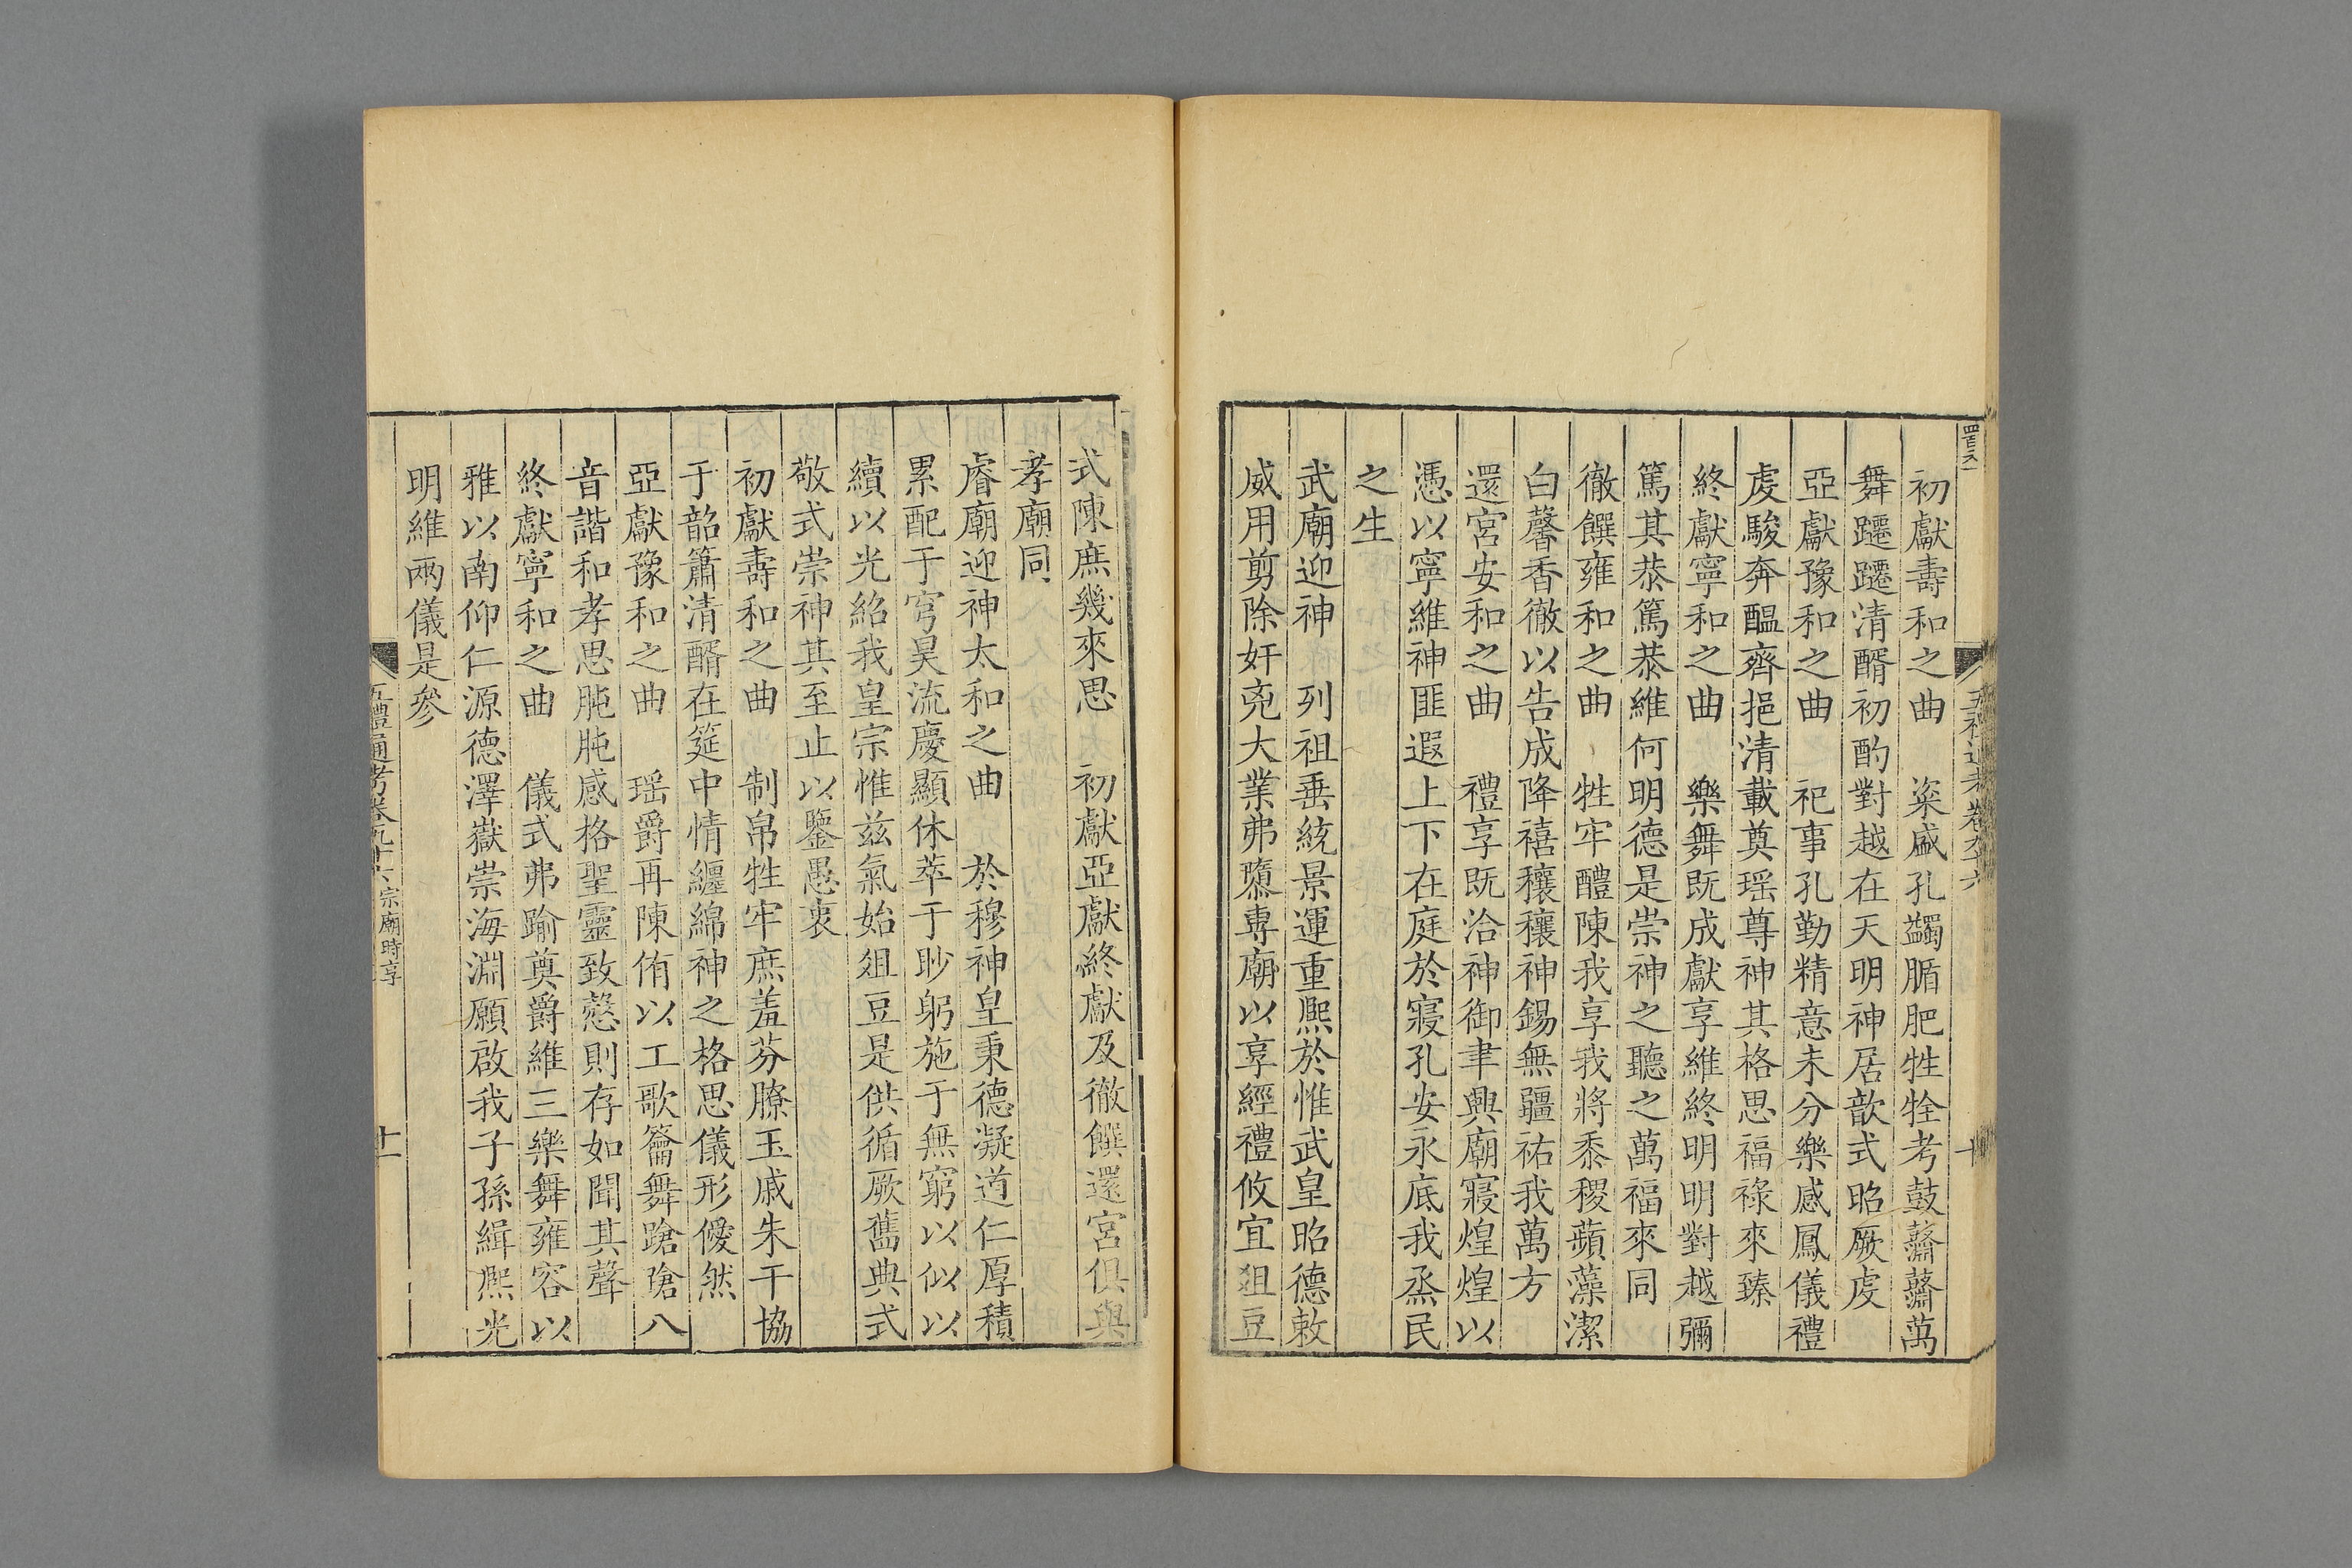 初獻壽和之曲　粢盛孔蠲腯肥牲牷考鼓薺薺萬
舞躚躚清醑初酌對越在天明神居歆式昭厥虔
亞獻豫和之曲　祀事孔勤精意未分樂感鳳儀禮
虔駿奔醖齊挹清載奠瑶尊神其格思福祿來臻
終獻寧和之曲　樂舞既成獻享維終明明對越彌
篤其恭篤恭維何明德是崇神之聽之萬福來同
徹饌雍和之曲　牲牢醴陳我享我將黍稷蘋藻潔
白馨香徹以告成降禧穰穰神錫無疆祐我萬方
還宮安和之曲　禮享既洽神御聿興廟寢煌煌以
憑以寧維神匪遐上下在庭於寢孔安永底我烝民
之生
武廟迎神　列祖垂統景運重熙於惟武皇昭德敕
威用剪除奸兇大業弗隳專廟以享經禮攸宜俎豆
五禮通考卷九十六　十
式陳庶幾來思　初獻亞獻終獻及徹饌還宮俱與
孝廟同
睿廟迎神太和之曲　於穆神皇秉德凝道仁厚積
累配于穹昊流慶顯休萃于眇躬施于無窮以似以
續以光紹我皇宗惟兹氣始俎豆是供循厥舊典式
敬式崇神其至止以鑒愚衷
初獻壽和之曲　制帛牲牢庶羞芬膫玉戚朱干協
于韶簫清醑在筵中情纏綿神之格思儀形僾然
亞獻豫和之曲　瑶爵再陳侑以工歌籥舞蹌蹌八
音諧和孝思肫肫感格聖靈致愨則存如聞其聲
終獻寧和之曲　儀式弗踰奠爵維三樂舞雍容以
雅以南仰仁源德澤嶽崇海淵願啟我子孫緝熙光
明維兩儀是參
五禮通考卷九十六　宗廟時享　十一